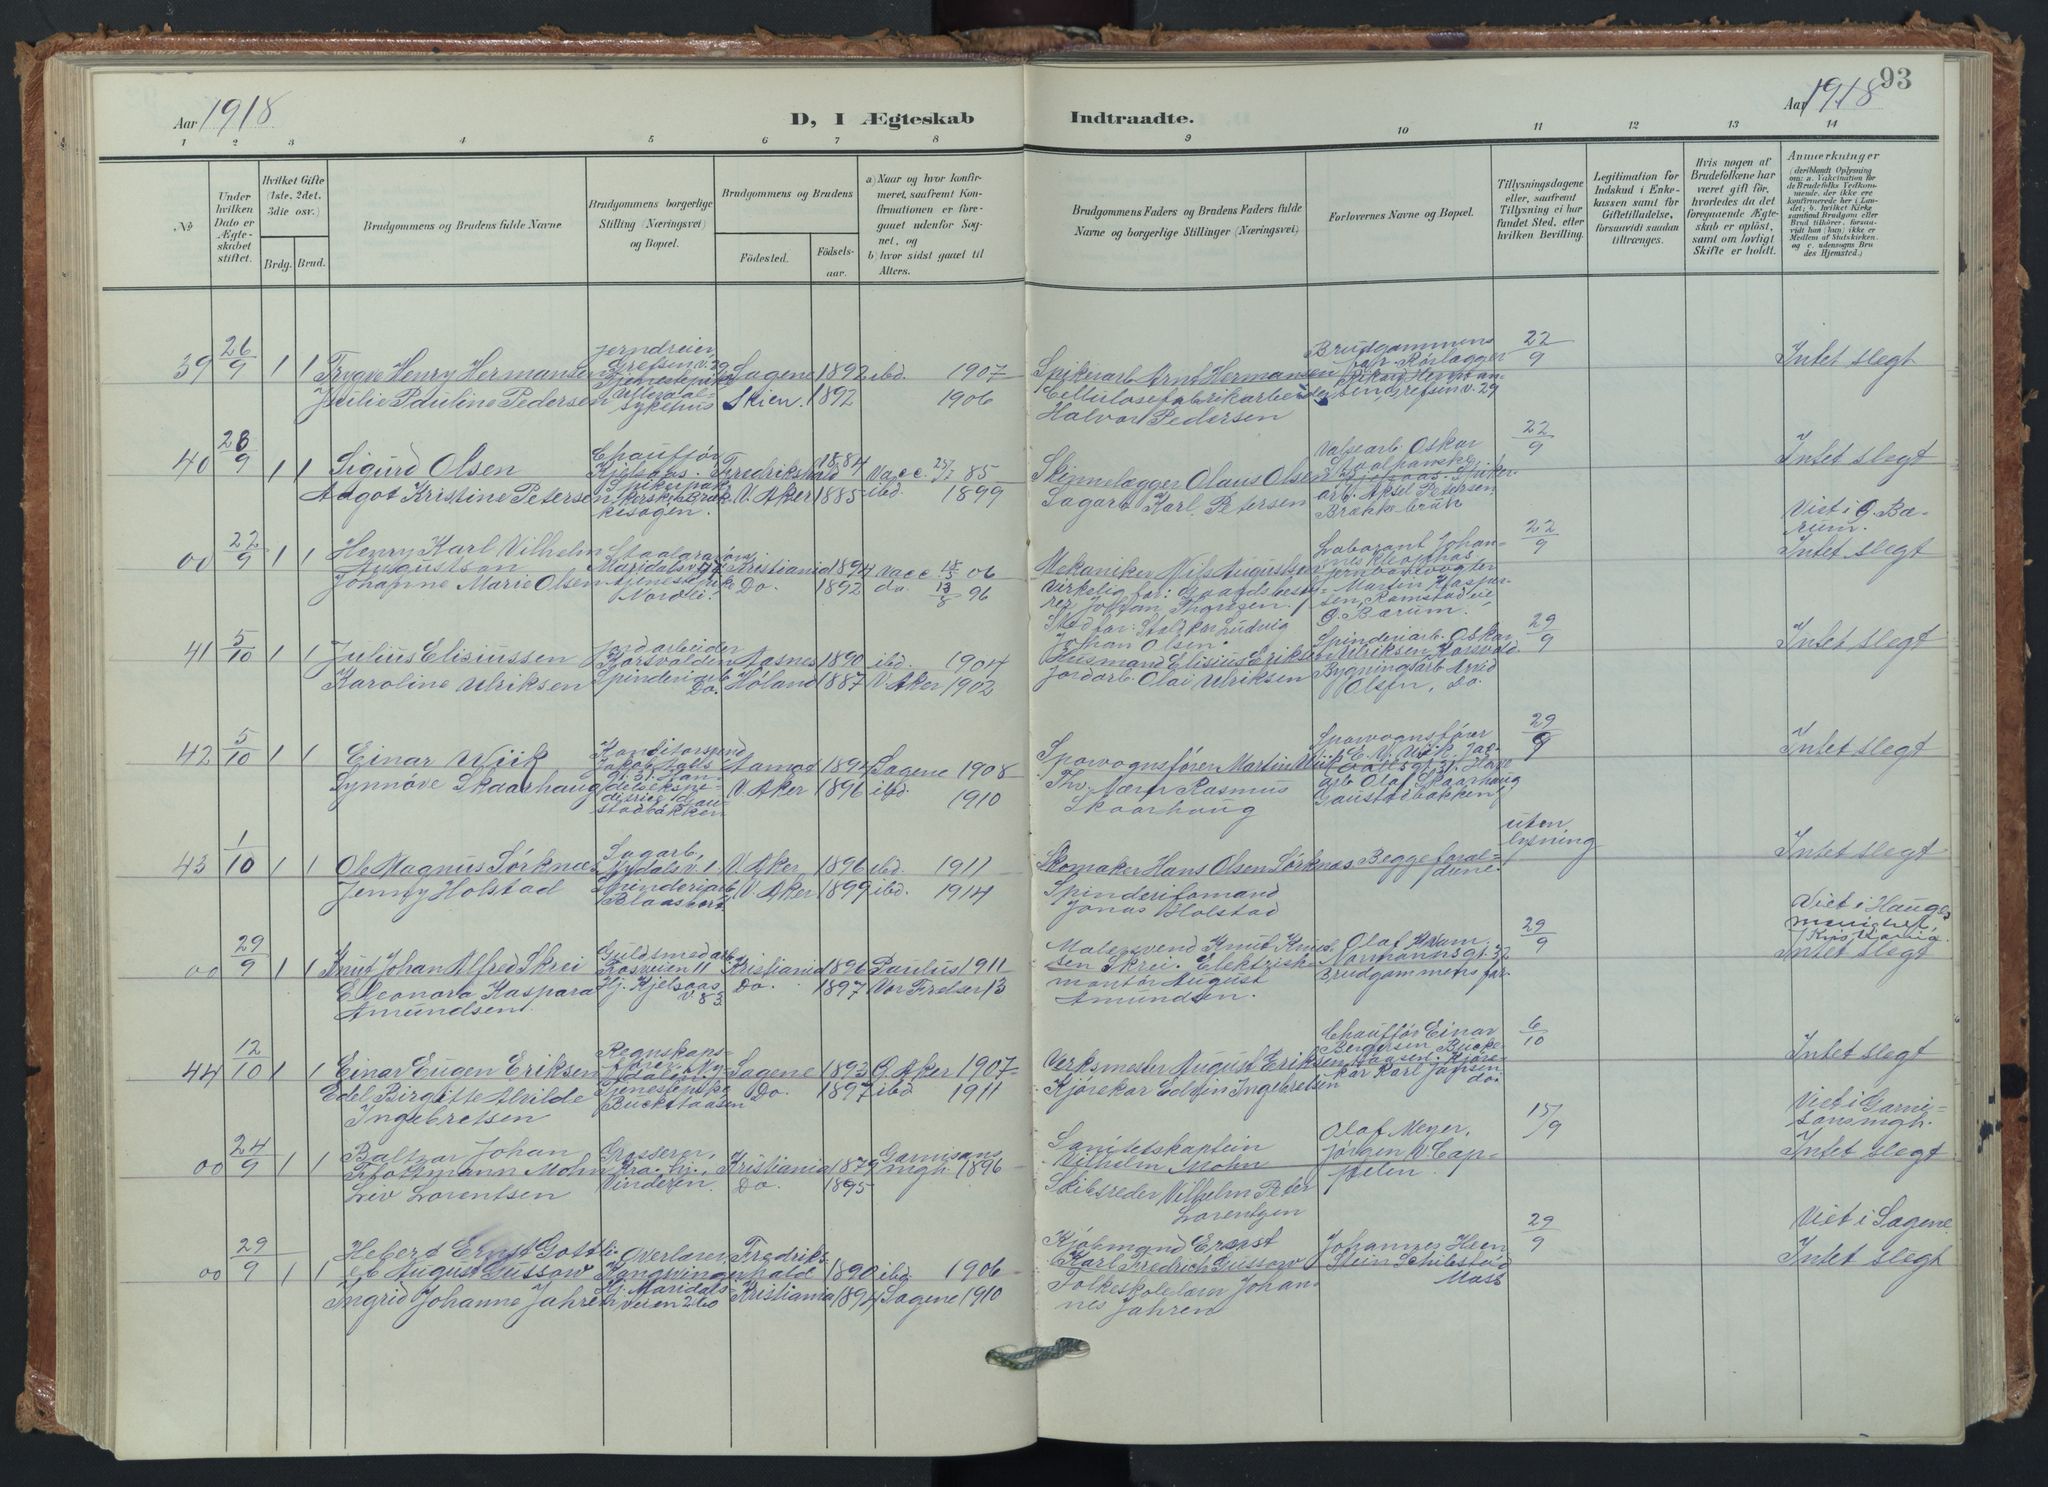 Aar 1918
D, I Ægteskab
Indtraadte.
Aar 1918
93
1 2 3 4 5 6 7 8 9 10 11 12 13 14
№
Under hvilken Dato er Ægteskabet stiftet.
Hvilket Gifte (1ste, 2det, 3die osv.)
Brdg. Brud.
Brudgommens og Brudens fulde Navne
Brudgommens borgerlige Stilling (Næringsvei) og Bopæl.
Brudgommens og Brudens
Födested.
Födselsaar.
a) Naar og hvor konfirmeret, saafremt Konfirmationen er foregaaet udenfor Sognet, og
b) hvor sidst gaaet til Alters.
Brudgommens Faders og Brudens Faders fulde Navne og borgerlige Stillinger (Næringsvei)
Forlovernes Navne og Bopæl.
Tillysningsdagene eller, saafremt Tillysning ei har fundet Sted, efter hvilken Bevilling.
Legitimation for Indskud i Enkekassen samt for Giftetilladelse, forsaavidt saadan tiltrænges.
Hvis nogen af Brudefolkene har været gift för, hvorledes da det foregaaende Ægteskab er oplöst, samt om lovligt Skifte er holdt.
Anmærkninger (deriblandt Oplysning om: a. Vakcination for de Brudefolks Vedkommende, der ikke ere konfirmerede her i Landet; b. hvilket Kirkesamfund Brudgom eller Brud tilhörer, forsaavidt han (hun) ikke er Medlem af Statskirken, og c. udensogns Brudes Hjemsted.)
39 26/9 1 1 Trygve Henry Hermansen Jerndreier Grefsen v. 29 Sagene 1892 ibd. 1907 Spikerarb. Arnt Hermansen Brudgommens far. Rørlægger 22/9 Intet slegt
Julie Pauline Pedersen sykehus Skien. 1892 1906 Cellulosefabrikarbeider Grefsen v. 29
Halvor Pedersen
40 28/9 1 1 Sigurd Olsen Chauffør Kjelsaas. Fredrikshald 1884 Vacc. 85 Skinnelægger Olaus Olsen Valsearb. Oskar 22/9 Intet slegt
Aagot Kristine Petersen V. Aker 1885 ibd. 1899 Sagarb. Karl Petersen arb. Aksel Petersen, Brækkebruk
Viet i Ø. Bærum.
00 22/9 1 1 Henry Karl Vilhelm Augustson Maridalsv. Kristiania 1894 Vacc. 06 Mekaniker Nils Augustsen Laborant Johannes 22/9 Intet slegt
Johanne Marie Olsen Nordli. Do. 1892 do. 13/8 96 Virkelig far: Gaardsbestyrer Johan Thoresen. Martin Kaspersen, Ramstad
Stedfar: Ludvig Johan Olsen. Ø. Bærum.
41 5/10 1 1 Julius Elisiussen Jordarbeider Korsvolden Aasnes 1890 ibd. 1904 Husmand Elisius Eriksen Spinderiarb. Oskar Ulriksen, Korsvold 29/9 Intet slegt
Karoline Ulriksen Spinderiarb. Do. Høland 1887 V. Aker 1902 Jordarb. Olai Ulriksen Bygningsarb. Arvid Olsen, Do.
42 5/10 1 1 Einar Wiik Konditorsvend Jakob Aalls gt. 31. Aamod Sagene 1908 Sporvognsfører Martin Wiik Sporvognsfører E. V. Wiik, 29/9 Intet slegt
Synnøve Skaarhaug Gaustadbakken V. Aker 1896 ibd. 1910 Rasmus Skaarhaug arb. Olaf Skaarhaug Gaustadbakken
43 1/10 1 1 Ole Magnus Sørknæs Sagarb. V. Aker 1896 ibd. 1911 Skomaker Hans Olsen Sørknæs Begge forældrene uten lysning Intet slegt
Jenny Holstad Spinderiarb. V. Aker 1899 ibd. 1914 Spinderiformand Jonas Holstad
Viet i Hauges
00 29/9 1 1 Knut Johan Alfred Skrei Guldsmedarb. Kristiania 1896 Paulus 1911 Malersvend Knut Knudsen Skrei. Olaf Normannsgt. 29/9 Intet slegt
Eleonora Kaspara Amundsen Hj. Kjelsaas v. 83 Do. 1897 Vor Frelser 13 Elektriske montør August Amundsen. Brudgommens far
44 12/10 1 1 Einar Eugen Eriksen Regnskapsfører Sagene 1893 Ø. Aker 1907 Verksmester August Eriksen Chauffør Einar Bergersen 6/10 Intet slegt
Edel Birgitte Alvilde Ingebretsen Do. 1897 ibd 1911 Kjørekar Edvin Ingebretsen Kjørekar Karl Jansen do.
Viet i Garnisonsmgh.
00 24/9 1 1 Baltzar Johan Flottmann Mohn Grosserer, Kra. hj. Kristiania 1879 Garnisons mgh. 1896 Sanitetskaptein Vilhelm Mohn Olaf Meyer, Jørgen W Cappelen. 15/9 Intet slegt
Liv Lorentsen Vinderen. Do. 1895 Skibsreder Vilhelm Peter Lorentzen
Viet i Sagene
00 29/9 1 1 Hebert Ernst Gottlieb August Gussow Overlærer, Kongvinger Fredrikshald 1890 ibd. 1906 Kjøbmand Ernst Karl Fredrich Gussow Johannes Heen 29/9 Intet slegt
Ingrid Johanne Jahren Hj. Maridalsveien 260 Kristiania 1894 Sagene 1910 Folkeskolelærer Johannes Jahren Stein Schibstad